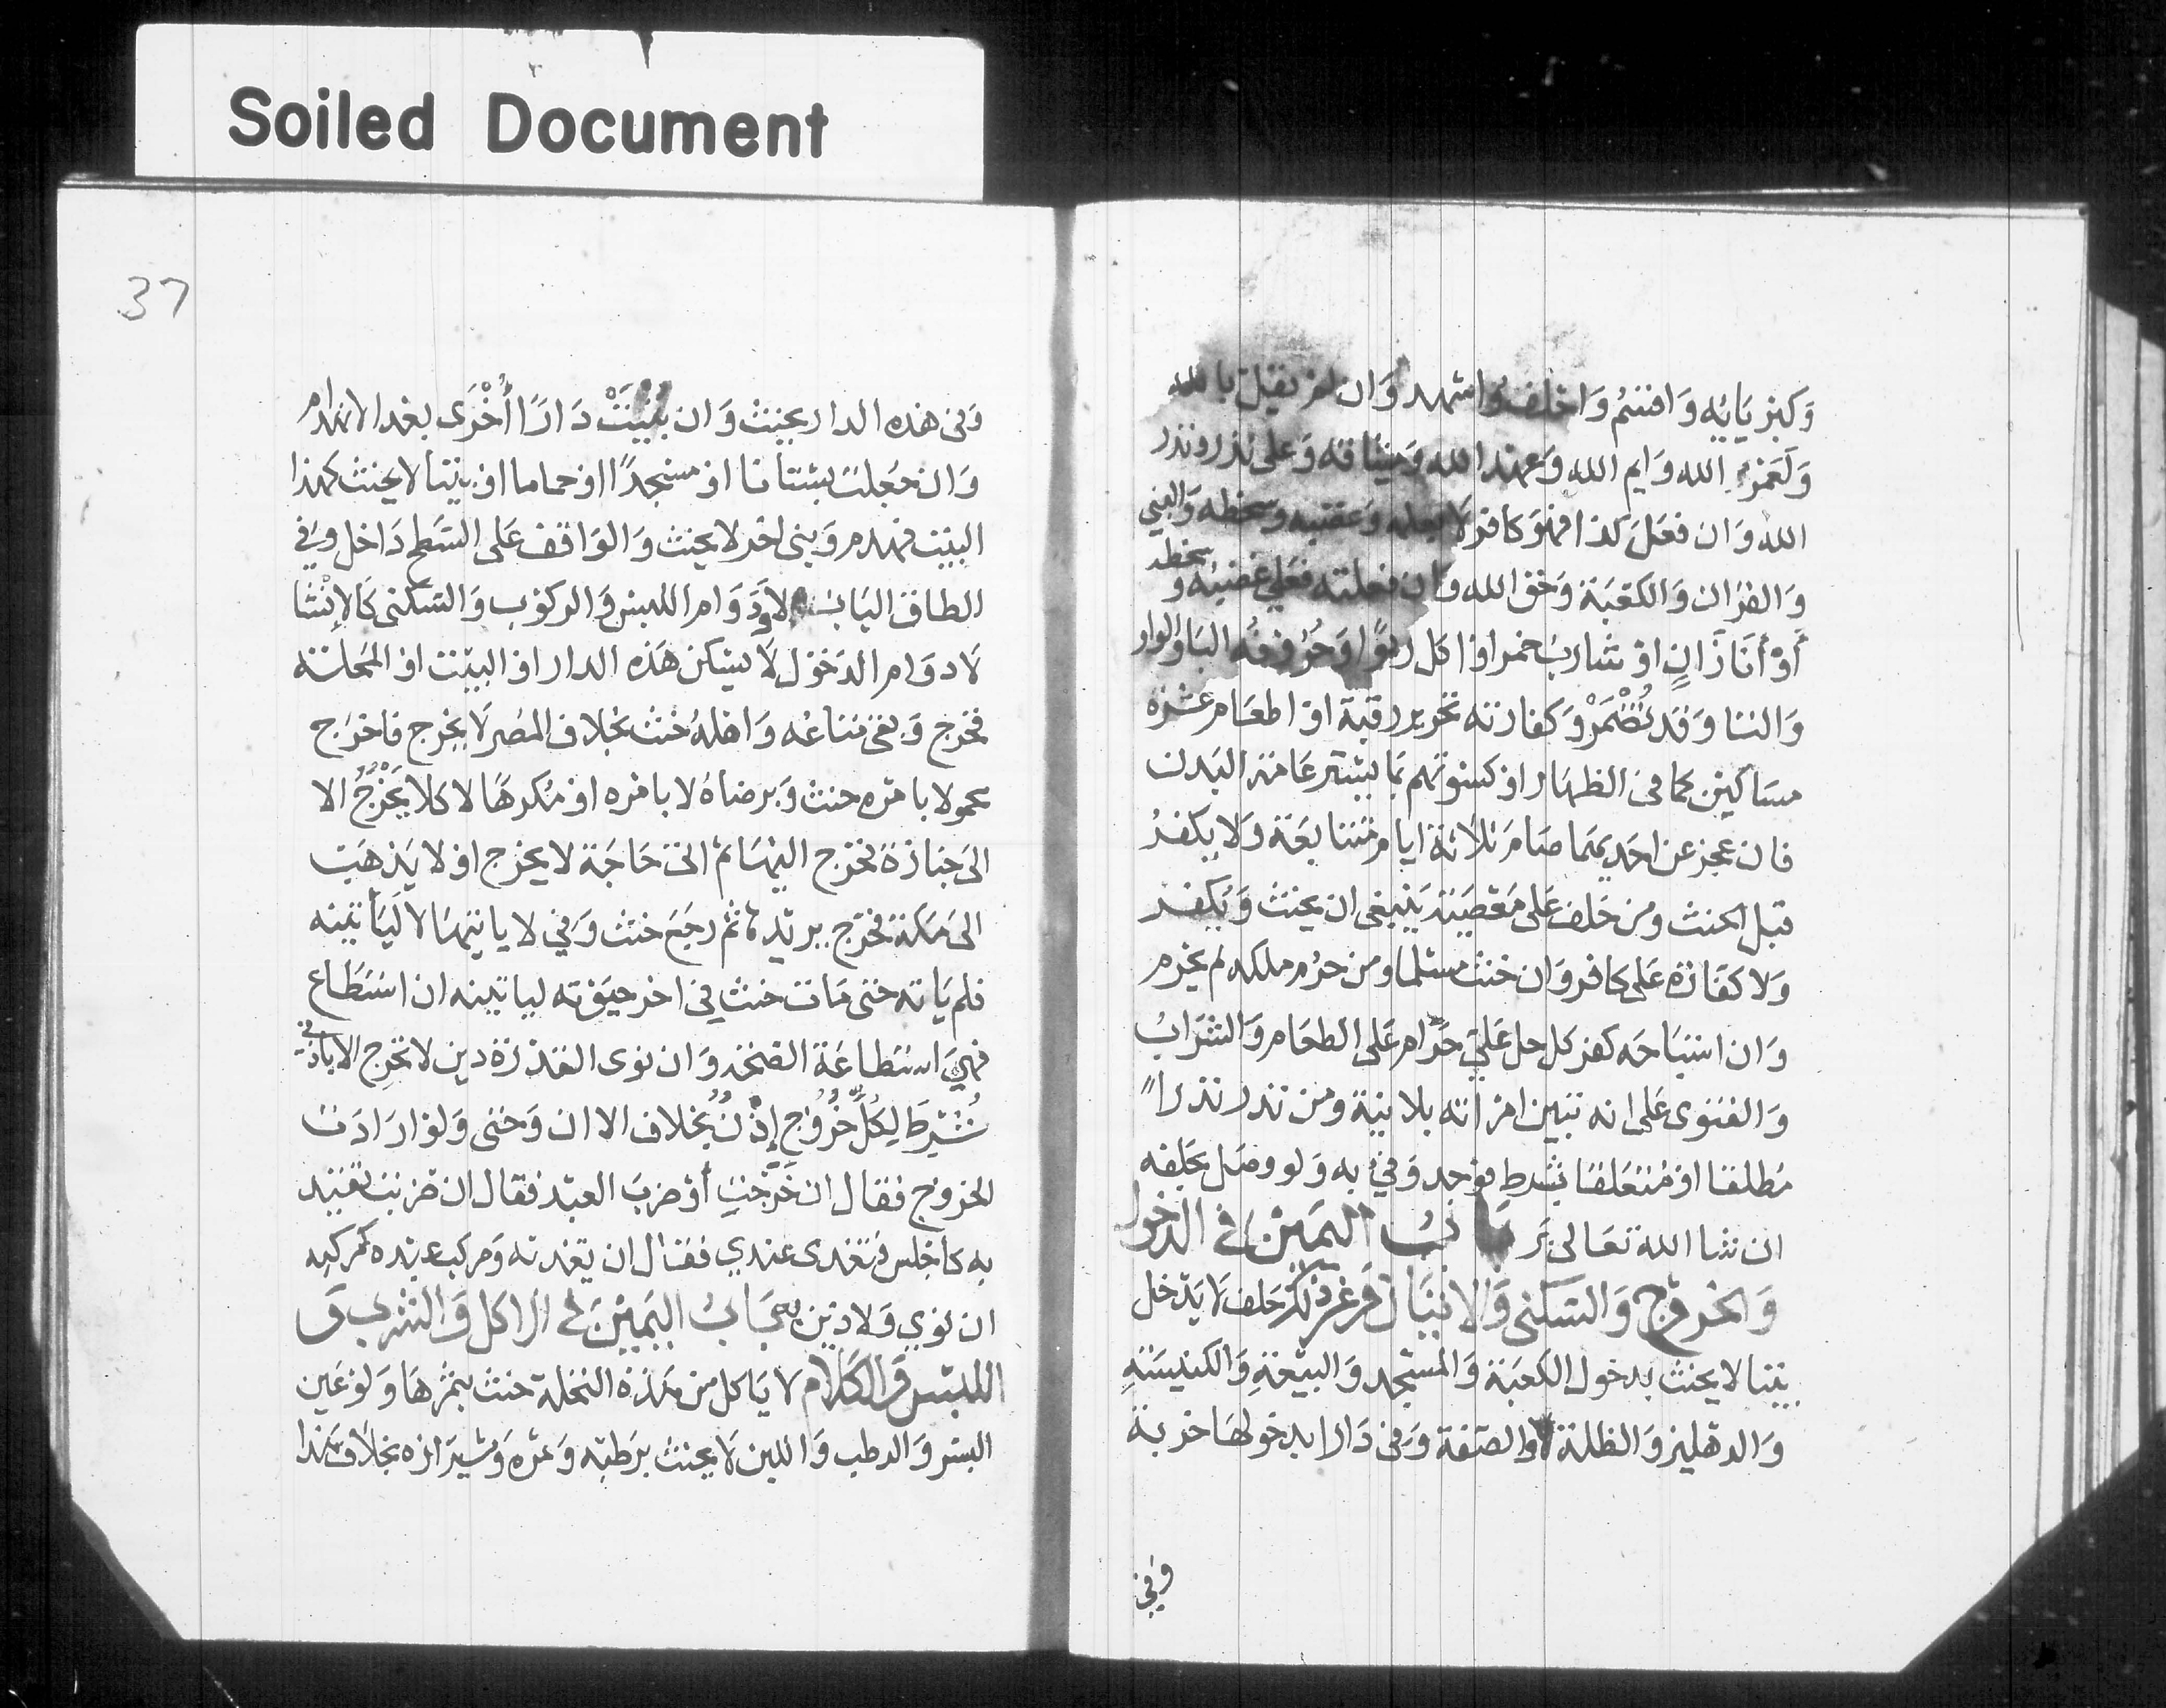 Soiled Document
وكبريائه واقسم واحلف واشهد وان لم يقل بالله
ولعمر الله وايم الله وعهد الله وميثاقه وعلى نذر ونذر
الله وان فعل كذا فهو كافر لا بعلمه وغضبه وسخطه والنبي
والقران والكعبة وحق الله وان فعلته فعلي غضبه و سخطه
أو أنا زانٍ او شارب خمر او اكل ربوًا وحروفه البا والواو
والتا وقد تُضْمَرْ وكفارته تحرير رقبة او اطعام عشرة
مساكين كما في الظهار او كسوتهم بما يستر عامة البدن
فان عجز عن احديهما صام ثلاثة ايام متتابعة ولا يكفر
قبل الحنث ومن حلف على معصية ينبغي ان يحنث ويكفر
ولا كفارة على كافر وان حنث مسلما ومن حرم ملكه لم يحرم
وان استباحه كفر كل حل عليّ حرام على الطعام والشراب
والفتوى على انه تبين امرأته بلا نية ومن نذر نذرا
مطلقا او معلقا بشرط فوجد وفي به ولو وصل بحلفه
ان شا الله تعالى بر باب اليمين في الدخول
والخروج والسكنى والاتيان وغير ذلك حلف لا يدخل
بيتا لا يحنث بدخول الكعبة والمسجد والبيعة والكنيسة
والدهليز والظلة والصفة وفي دارا بدخولها خربة
وفي
37
وفي هذه الدار يحنث وان بُنيتْ دارًا أُخْرَى بعد الانهدام
وان جعلت بستانا او مسجدًا او حماما او بيتا لا يحنث كهذا
البيت فهدم وبنى اخر لا يحنث والواقف على السطح داخل وفي
الطاق الباب لا ودوام اللبس والركوب والسكنى كالانشا
لا دوام الدخول لا يسكن هذه الدار او البيت او المحلة
فخرج وبقى متاعه واهله حنث بخلاف المصر لا يخرج فاخرج
محمولا بامره حنث وبرضاه لا بامره او مكرها لا كلا يَخْرُجُ الا
الى جنازة فخرج اليها ثم الى حاجة لا يخرج او لا يذهب
الى مكة فخرج يريدها ثم رجع حنث وفي لا ياتيها لا ليأتينه
فلم ياته حتى مات حنث في اخر حيوته لياتينه ان استطاع
فهي استطاعة الصحة وان نوى القدرة دين لا تخرج الا باذني
شُرِطَ لِكُلِّ خُرُوْجٍ إِذْنٌ بخلاف الا ان وحتى ولو ارادت
الخروج فقال ان خرجتِ أو ضربَ العبد فقال ان ضربت تقيد
به كاجلس فتغدى عندي فقال ان تغديته ومركب عبده كمركبه
ان نوى ولا دين به باب اليمين في الاكل والشرب و
اللبس والكلام لا ياكل من هذه النخلة حنث بثمرها ولو عين
البسر والرطب واللبن لا يحنث برطبه وتمره وشيرازه بخلاف هذا